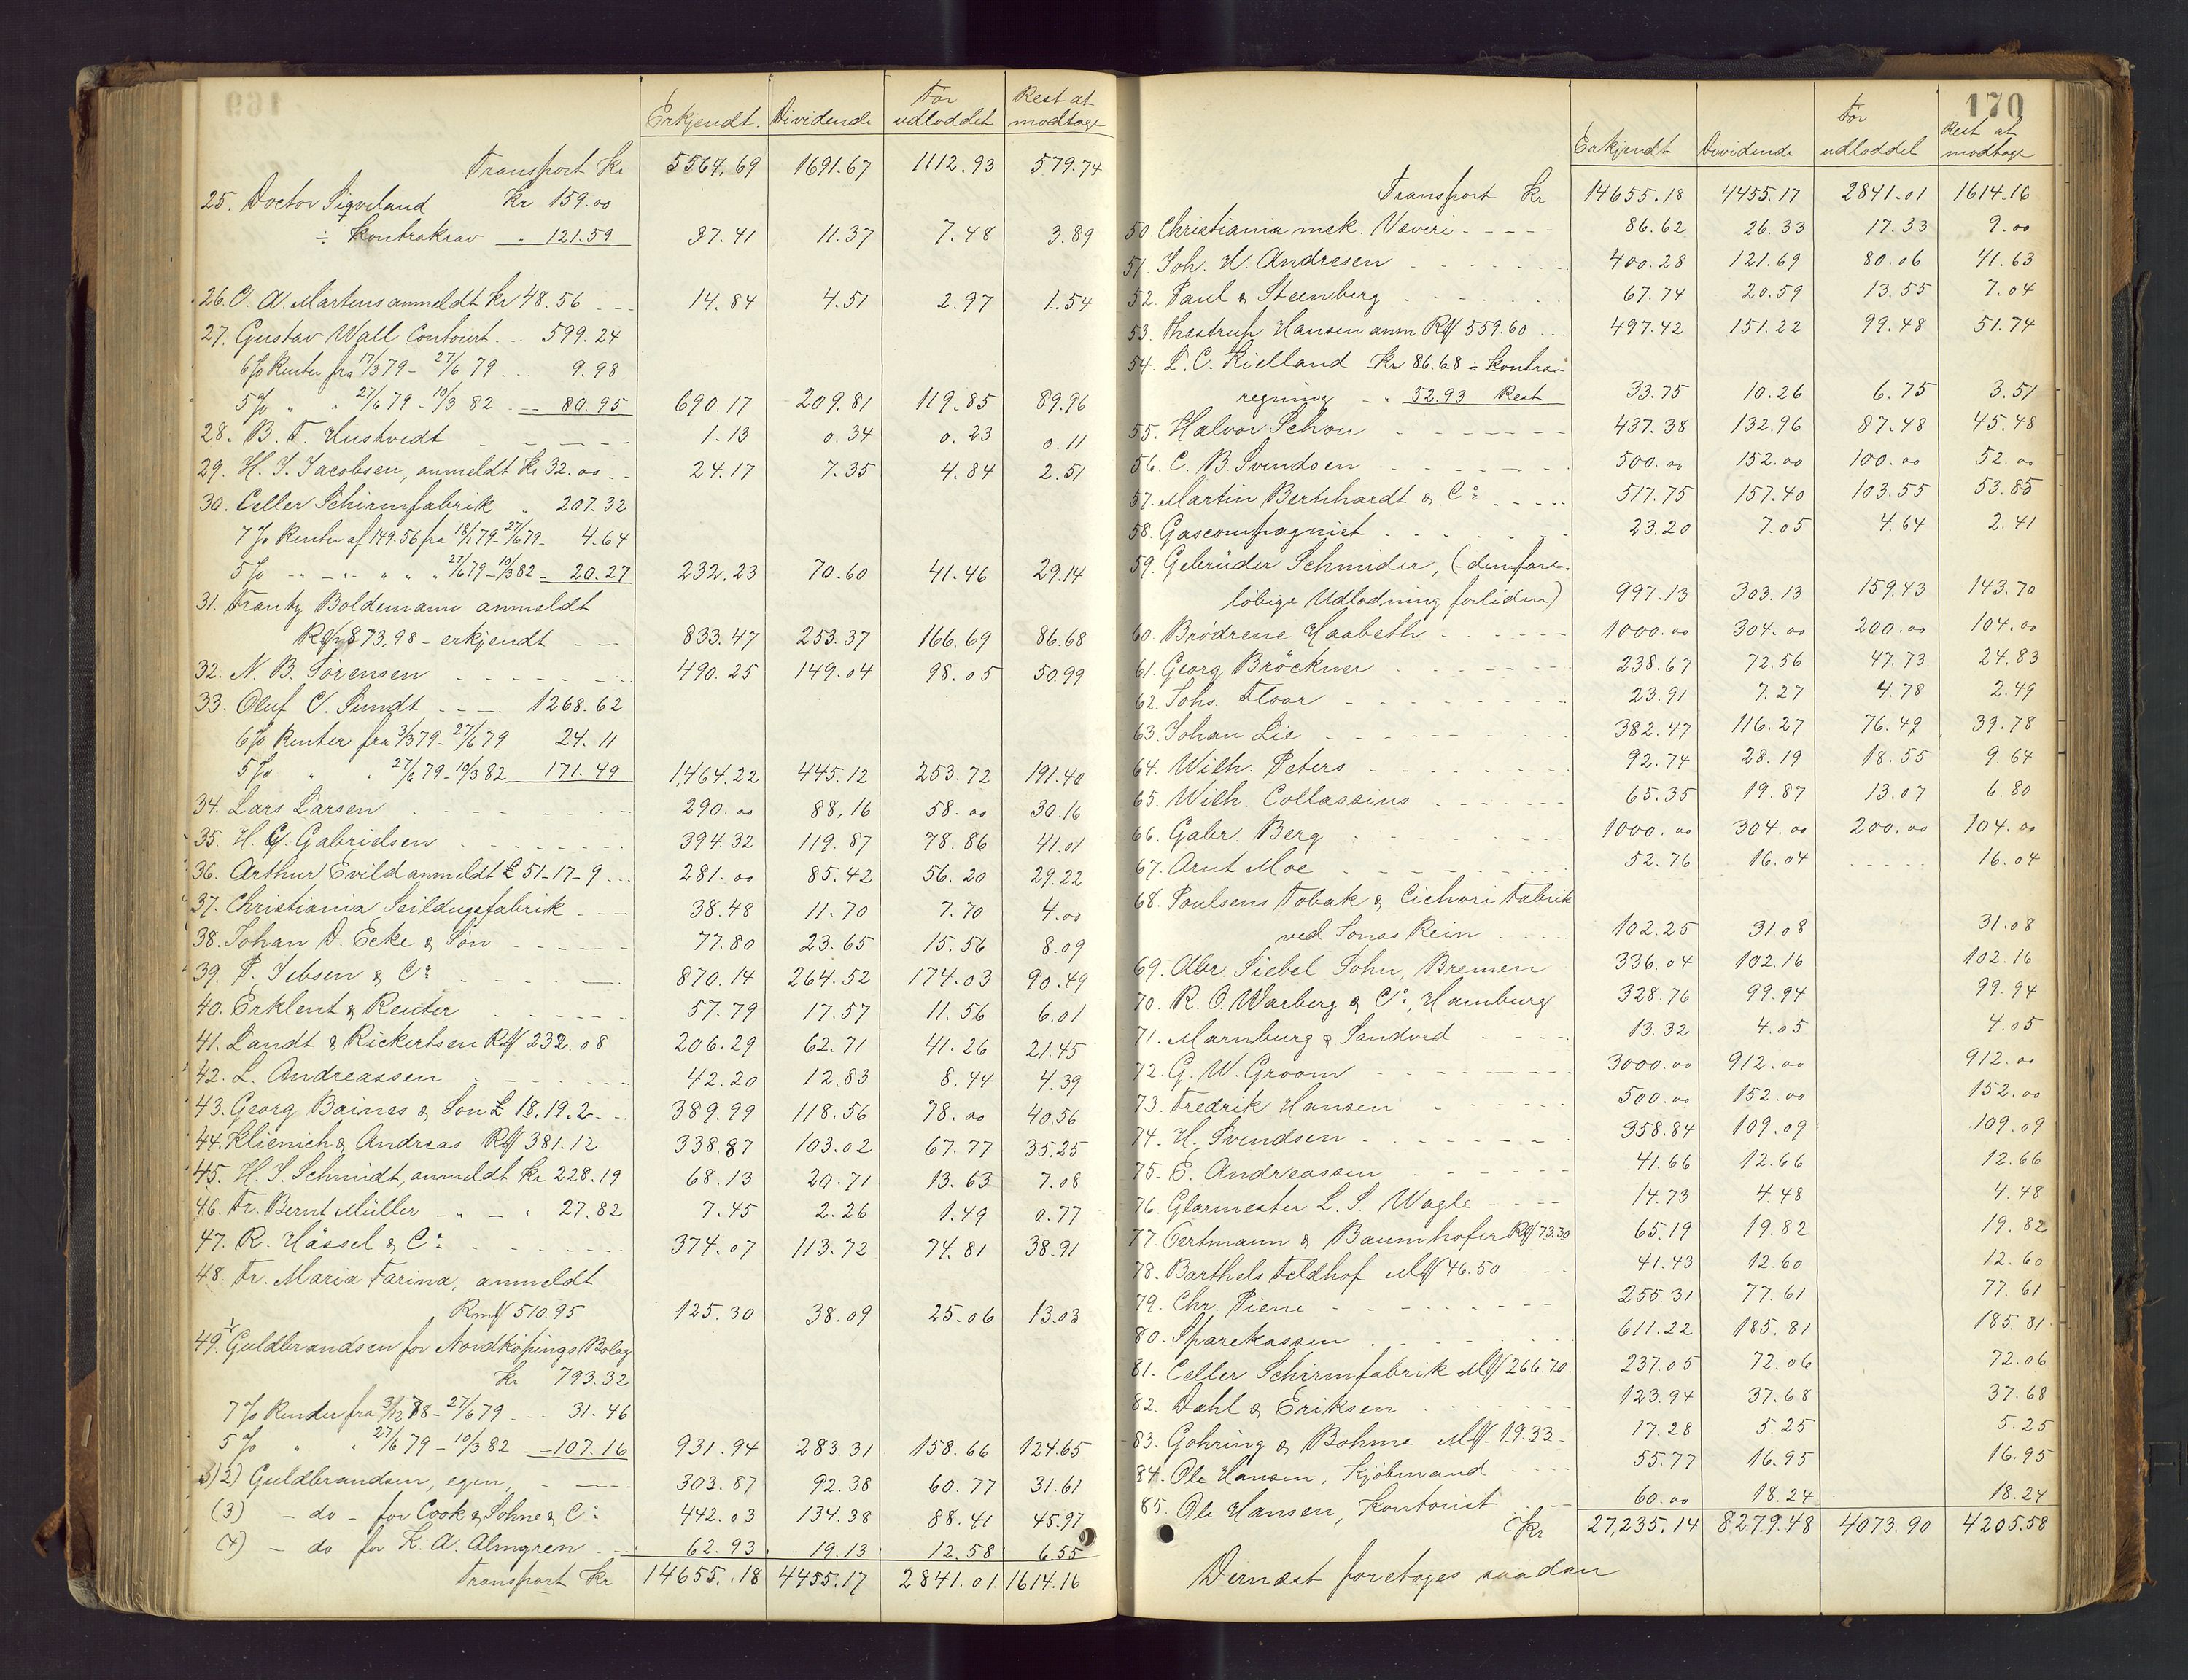 169
Erkjendt. Dividende Før udloddet Rest at modtage
Transport Kr 5564.69 1691.67 1112.93 579.74
25. Doctor Sigveland Kr 159.00
÷ Kontrakrav " 121.59 37.41 11.37 7.48 3.89
26. C. A. Martens anmeldt Kr 48.56 14.84 4.51 2.97 1.54
27. Gustav Wall Contoirt. 599.24
6% Renter fra 17/3 79 - 27/6 79 9.98
5% " " 27/6 79 - 10/3 82 80.95 690.17 209.81 119.85 89.96
28. B. T. Hustvedt 1.13 0.34 0.23 0.11
29. H. J. Jacobsen, anmeldt Kr 32.00 24.17 7.35 4.84 2.51
30. Celler Schirmfabrik " 207.32
7% Renter af 149.56 fra 18/1 79 - 27/6 79 - 4.64
5% - " - " - " " " 27/6 79 - 10/3 82 - 20.27 232.23 70.60 41.46 29.14
31. Frantz Boldemann anmeldt
873,98 - erkjendt 833.47 253.37 166.69 86.68
32. N. B. Sørensen 490.25 149.04 98.05 50.99
33. Oluf C. Sundt 1268.62
6% Renter fra 3/3 79 - 27/6 79 24.11
5% " " 27/6 79 - 10/3 82 171.49 1,464.22 445.12 253.72 191.40
34. Lars Larsen 290.00 88,16 58.00 30.16
35. H. G. Gabrielsen 394.32 119.87 78.86 41.01
36. Arthur Evild anmeldt £ 51-17-9 281.00 85.42 56.20 29.22
37. Christiania Seildugsfabrik 38.48 11.70 7.70 4.00
38. Johan D. Ecke & Søn 77.80 23.65 15.56 8.09
39. P. Jebsen & Co 870.14 264.52 174.03 90.49
40. Erklent & Reuter 57.79 17.57 11.56 6.01
41. Landt & Rickertsen Rm 232.08 206.29 62.71 41.26 21.45
42. L. Andreassen 42.20 12.83 8.44 4.39
43. Georg Baines & Son £ 18.19.2 389.99 118.56 78.00 40.56
44. Klienich & Andreas Rm 381.12 338.87 103.02 67.77 35.25
45. H. J. Schmidt, anmeldt Kr 228.19 68.13 20.71 13.63 7.08
46. Fr. Bernt Müller - " - " 27.82 7.45 2.26 1.49 0.77
47. R. Hässel & Co 374.07 113.72 74.81 38.91
48. Fr. Maria Farina, anmeldt
Rm 510.95 125.30 38.09 25.06 13.03
49. 1/ Guldbrandsen for Nordköpings Bolag
Kr 793.32
7% Render fra 3/12 78 - 27/6 79 31.46
5% " " 27/6 79 - 10/3 82 - 107.16 931.94 283.31 158.66 124.65
2) Guldbrandsen, egen, 303.87 92.38 60.77 31.61
(3) - do - for Cook & Sohne & Co 442.03 134.38 88.41 45.97
(4) - do for K. A. Almgren 62.93 19.13 12.58 6.55
Transport Kr 14655.18 4455.17 2841.01 1614.16
170
Erkjendt Dividende Før udloddet Rest at modtage
Transport Kr 14655.18 4455.17 2841.01 1614.16
50. Christiania mek. Væveri 86.62 26.33 17.33 9.00
51. Joh. H. Andresen 400.28 121.69 80.06 41.63
52. Paul & Steenberg 67.74 20.59 13.55 7.04
53. Thestrup Hansen anm Rm 559.60 497.42 151.22 99.48 51.74
54. L. C. Kielland Kr 86.68 ÷ Kontra-
regning - " 52.93 Rest 33.75 10.26 6.75 3.51
55. Halvor Schou 437.38 132.96 87.48 45.48
56. C. B. Svendsen 500.00 152.00 100.00 52.00
57. Martin Bernhardt & Co 517.75 157.40 103.55 53.85
58. Gascompagniet 23.20 7.05 4.64 2.41
59. Gebrüder Schmider, (- den fore-
løbige Udlodning forliden) 997.13 303.13 159.43 143.70
60. Brødrene Haabeth 1000.00 304.00 200.00 104.00
61. Georg Bröckner 238.67 72.56 47.73 24.83
62. Johs. Floor 23.91 7.27 4.78 2.49
63. Johan Lie 382.47 116.27 76.49 39.78
64. Wilh. Peters 92.74 28.19 18.55 9.64
65. Wilh. Collassius 65.35 19.87 13.07 6.80
66. Gabr. Berg 1000.00 304.00 200.00 104.00
67. Arnt Moe 52.76 16.04 - - - - - 16.04
68. Poulsens Tobak & Cichori Fabrik
ved Jonas Rein 102.25 31.08 31.08
69. Abr. Siebel Sohn, Bremen 336.04 102.16 102.16
70. R. O. Warberg & Co, Hamburg 328.76 99.94 99.94
71. Marnburg & Sandved 13.32 4.05 4.05
72. G. W. Groom 3000.00 912.00 912.00
73. Fredrik Hansen 500.00 152.00 152.00
74. H. Svendsen 358.84 109.09 109.09
75. E. Andreassen 41.66 12.66 12.66
76. Glarmester L. S. Wagle 14.73 4.48 4.48
77. Oertmann & Baumhofer Rm 73.30 65.19 19.82 19.82
78. Barthels Feldhof M 46.50 41.43 12.60 12.60
79. Chr. Piene 255.31 77.61 77.61
80. Sparekassen 611.22 185.81 185.81
81. Celler Schirmfabrik M 266.70. 237.05 72.06 72.06
82. Dahl & Eriksen 123.94 37.68 37.68
83. Gohring & Bohme M - 19.33 - 17.28 5.25 5.25
84. Ole Hansen, Kjøbmand 55.77 16.95 16.95
85. Ole Hansen, Kontorist 60.00 18.24 18.24
Kr 27,235.14 8279.48 4073.90 4205.58
Dernæst foretoges saadan